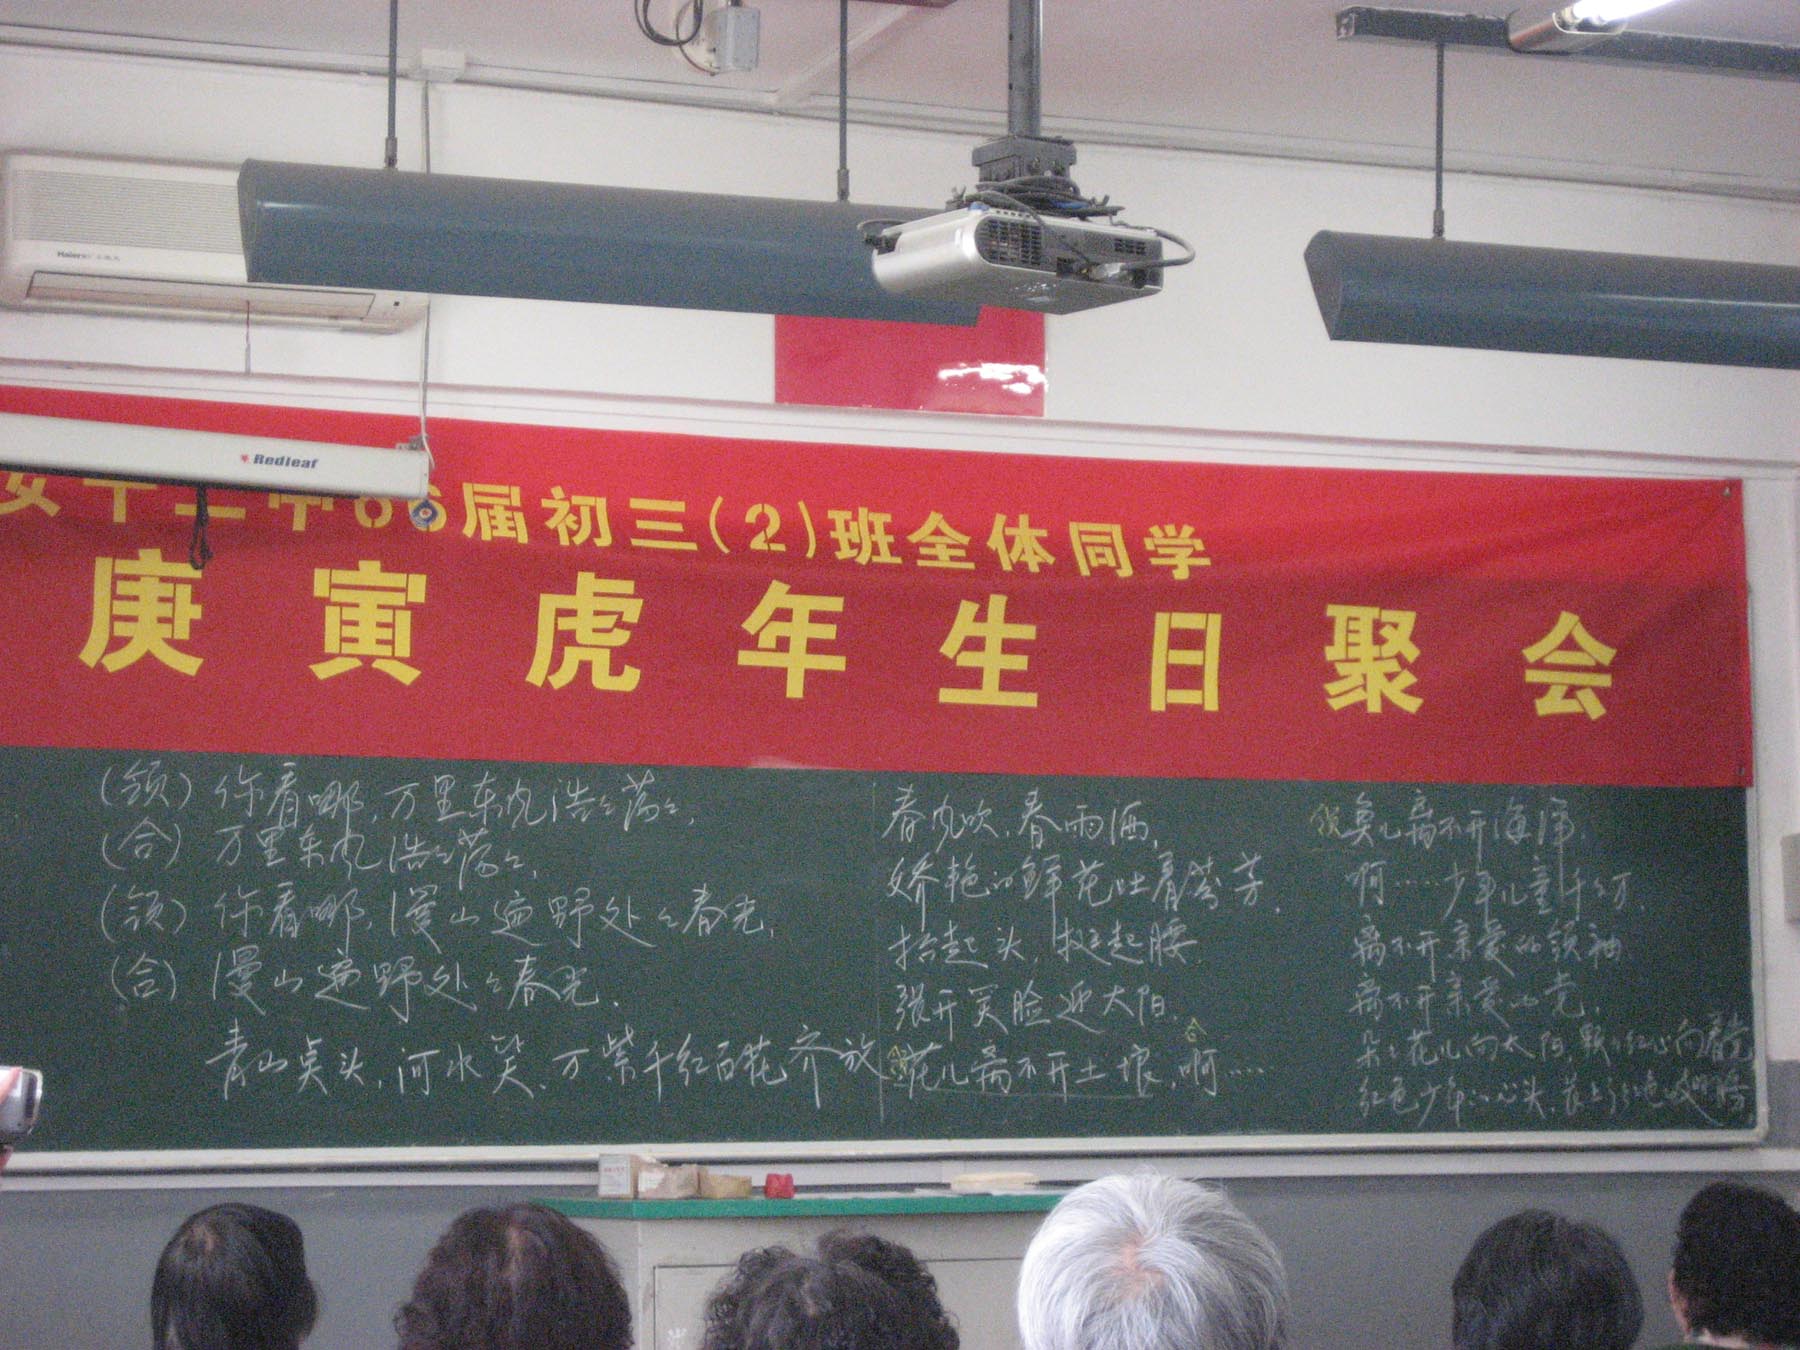 Haier
Redleaf
女十二中66届初三(2)班全体同学
庚寅虎年生日聚会
(领)你看哪,万里东风浩々荡々,
(合)万里东风浩々荡々,
(领)你看哪,漫山遍野处々春光,
(合)漫山遍野处々春光.
青山点头,河水笑,万紫千红百花齐放
春风吹,春雨洒,
娇艳的鲜花吐着芬芳.
抬起头,挺起腰
张开笑脸迎太阳.
花儿离不开土壤,啊……
合
鱼儿离不开海洋.
啊……少年儿童千々万,
离不开亲爱的领袖
离不开亲爱的党.
朵々花儿向太阳,颗々红心向着党
红色少年的心头,